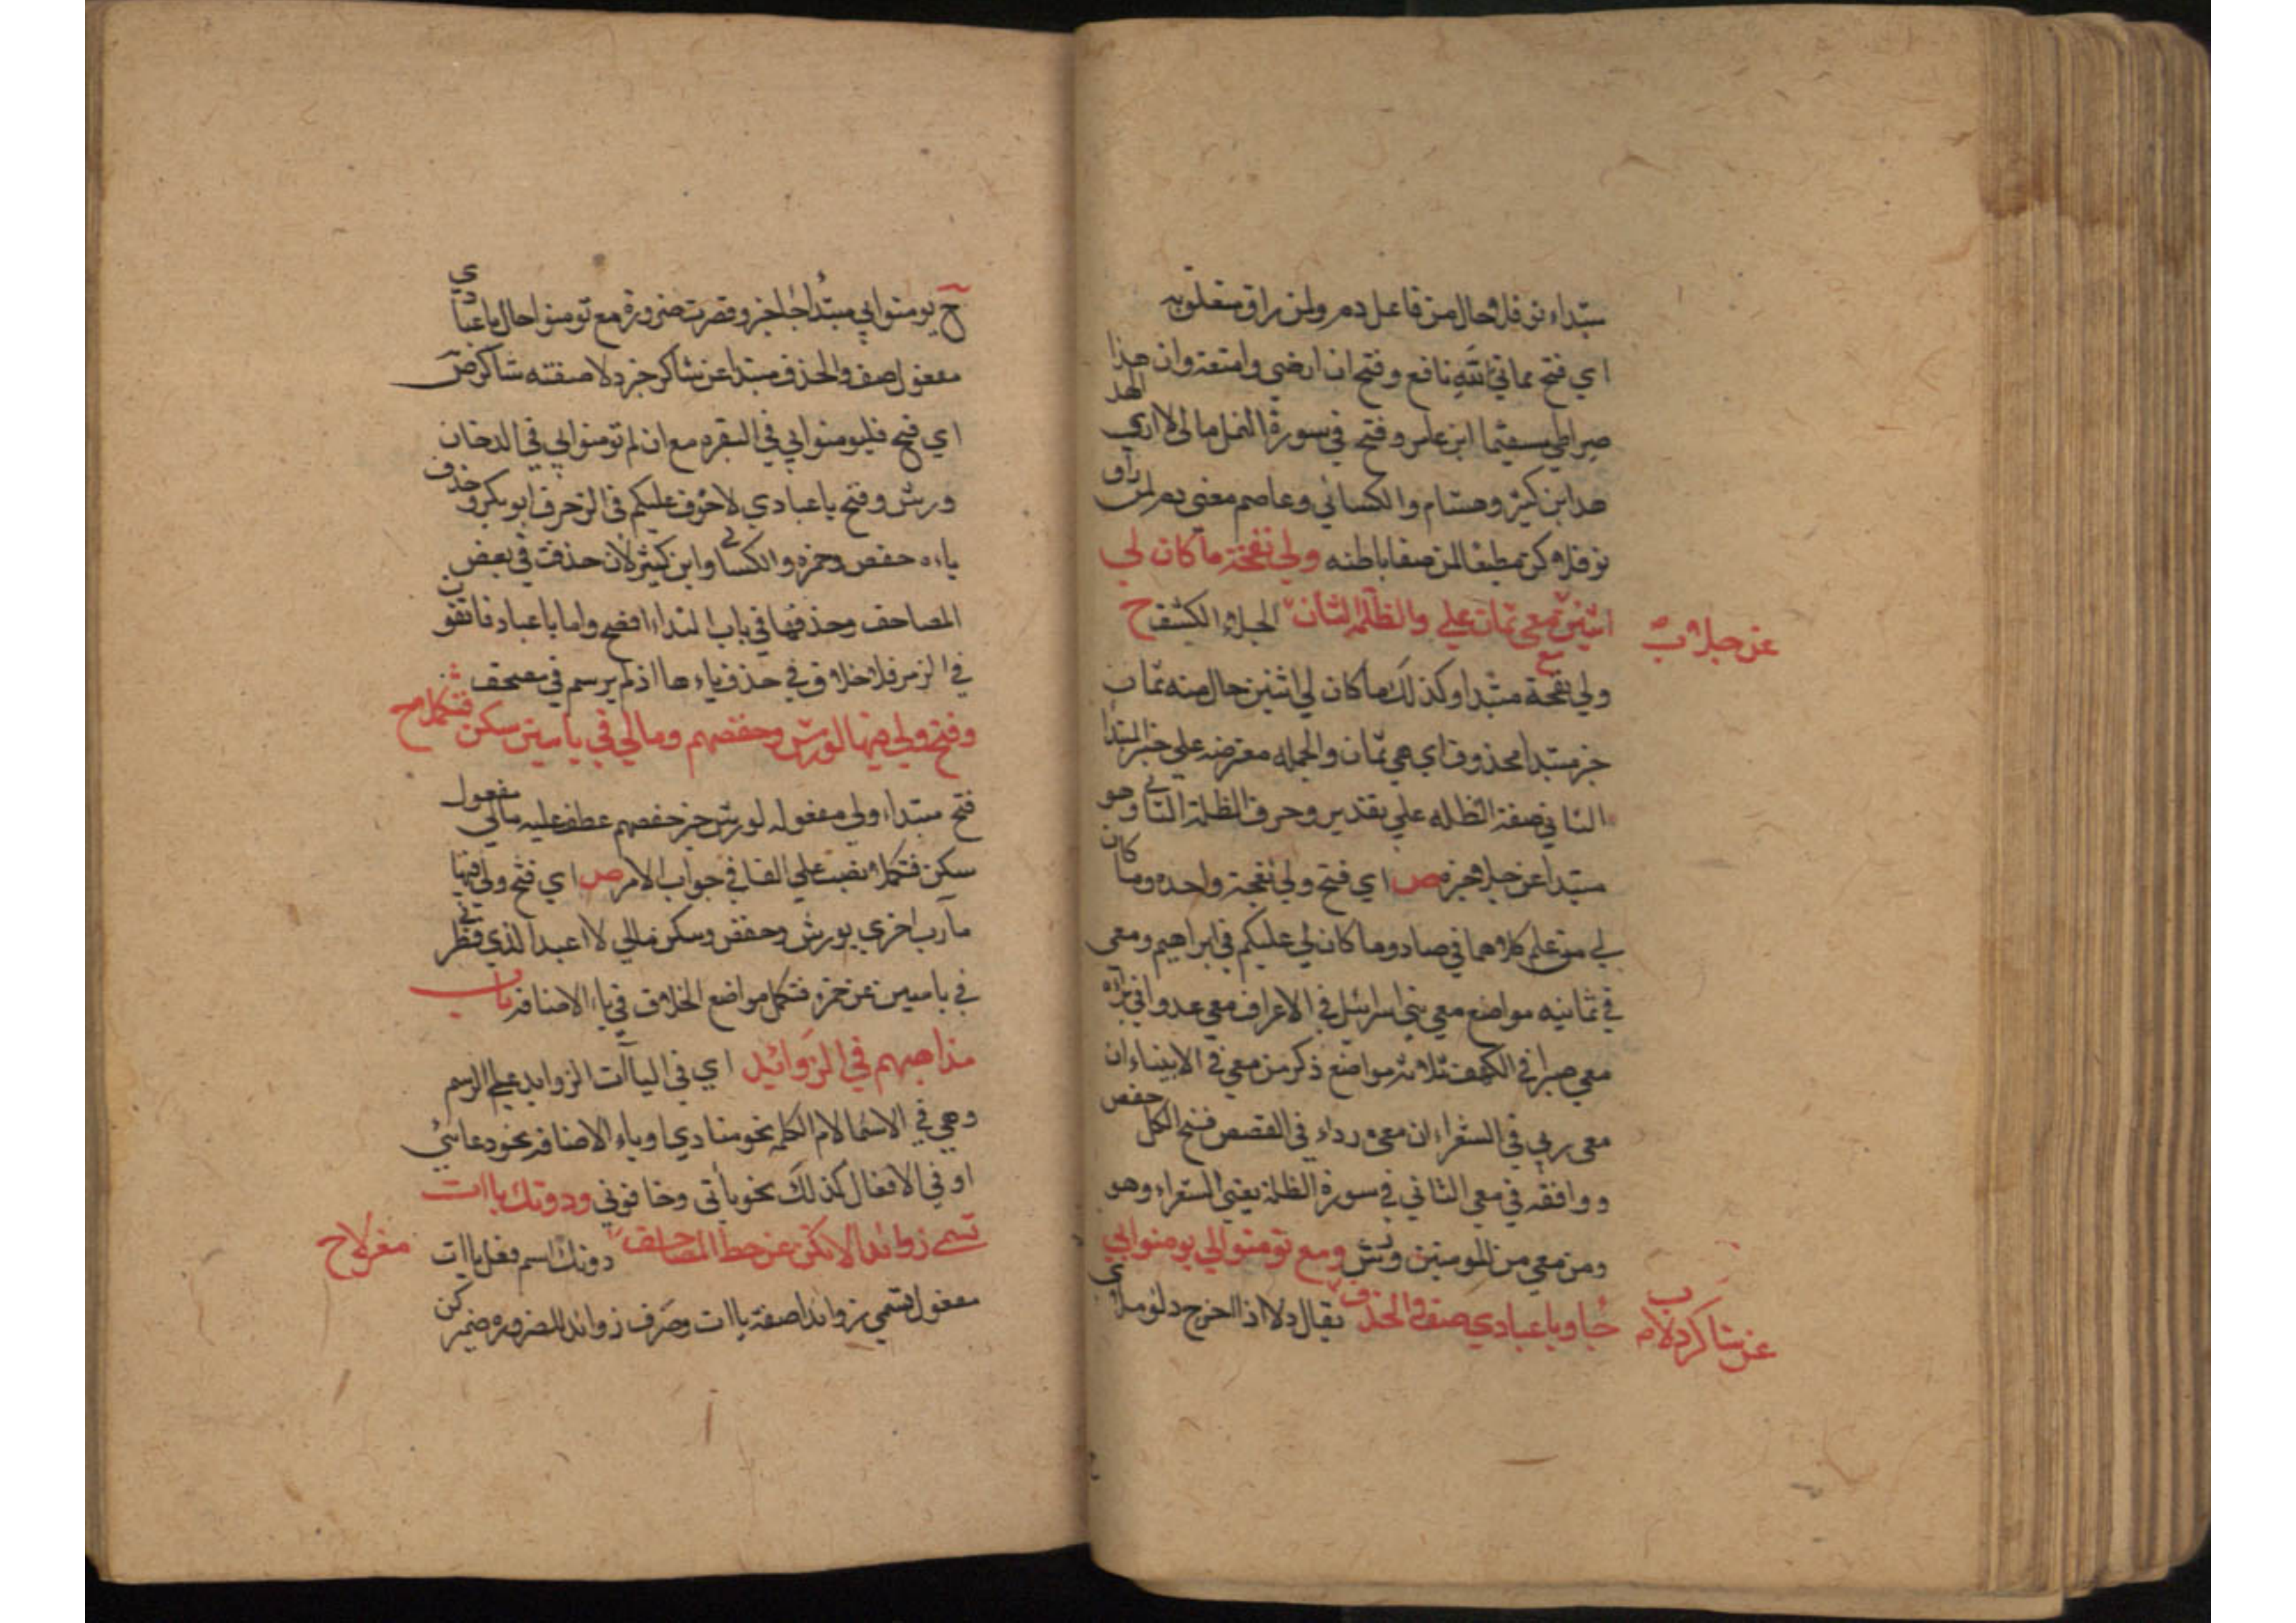 مبتداء نوفلا حال من فاعل دم ولمن راق متعلق به
اي فتح مماتي لله نافع وفتح ان ارضي واسعة وان هذا
صراطي مستقيما ابن عامر وفتح في سورة النمل مالي لا اري الهد
هد ابن كثير وهشام والكسائي وعاصم معني دم لمن راق
نوفلا كن مطيعا لمن صفا باطنه ولي نعجة ما كان لي
اثنين مع معي ثمان علي والظلة الثان عن جلا ب الجلا الكشف ح
ولي نعجة مبتدا وكذلك ما كان لي اثنين حال منه ثمان
خبر مبتدا محذوف اي هي ثمان والجمله معترضه علي خبر المبتدا
الثاني صفة الظله علي تقدير وحرف الظلة الثاني وهو
مبتدا عن جلا خبره ص اي فتح ولي نعجة واحده وما كان
لي من علم كلاهما في صاد وما كان لي عليكم في ابراهيم ومعي
في ثمانيه مواضع معي بني اسرائيل في الاعراف معي عدوا في براة
معي صبرا في الكهف ثلاثة مواضع ذكر من معي في الانبياء ان
معي ربي في الشعراء ان معي رداء في القصص فتح الكل حفص
ووافقه في معي الثاني في سورة الظلة يعني الشعراء وهو
ومن معي من المومنين ورش ومع تومنوا لي يومنوا بي
جا ويا عبادي صف والحذف عن شاكر دلا ب يقال دلا اذا اخرج دلوه ملاي
ح يومنوا بي مبتدا جا خبر وقصرت ضرورة مع تومنوا حال يا عبادي
مفعول صف والحذف مبتدا عن شاكر خبر دلا صفته شاكر ص
اي فتح فليومنوا بي في البقره مع ان لم تومنوا لي في الدخان
ورش وفتح يا عبادي لا خوف عليكم في الزخرف ابو بكر وحذف
ياءه حفص وحمزه والكسائي وابن كثير لان حذفت في بعض
المصاحف وحذفها في باب النداء افصح واما يا عباد فاتقون
في الزمر فلا خلاف في حذف ياءها اذ لم يرسم في مصحف
وفتح ولي فيها لورش وحفصهم ومالي في ياسين سكن فتكملا ح
فتح مبتداء ولي مفعوله لورش خبر حفصهم عطف عليه مالي مفعول
سكن فتكملا نصب علي الفا في جواب الامر ص اي فتح ولي فيها
مآرب اخري لورش وحفص وسكن مالي لا اعبد الذي فطرني
في ياسين عن حمزه فتكمل مواضع الخلاف في ياء الاضافه باب
مذاهبهم في الزوائد اي في الياآت الزوايد علي الرسم
وهي في الاسما لام الكلمه نحو منادي او ياء الاضافه نحو دعائي
او في الافعال كذلك نحو ياتي وخافوني ودونك ياات
تسمي زوائدا لان كن عن خط المصاحف معزلا ح دونك اسم فعل ياات
مفعول تسمي زوائدا صفة ياات وصرف زوائد للضروره ضمير كن